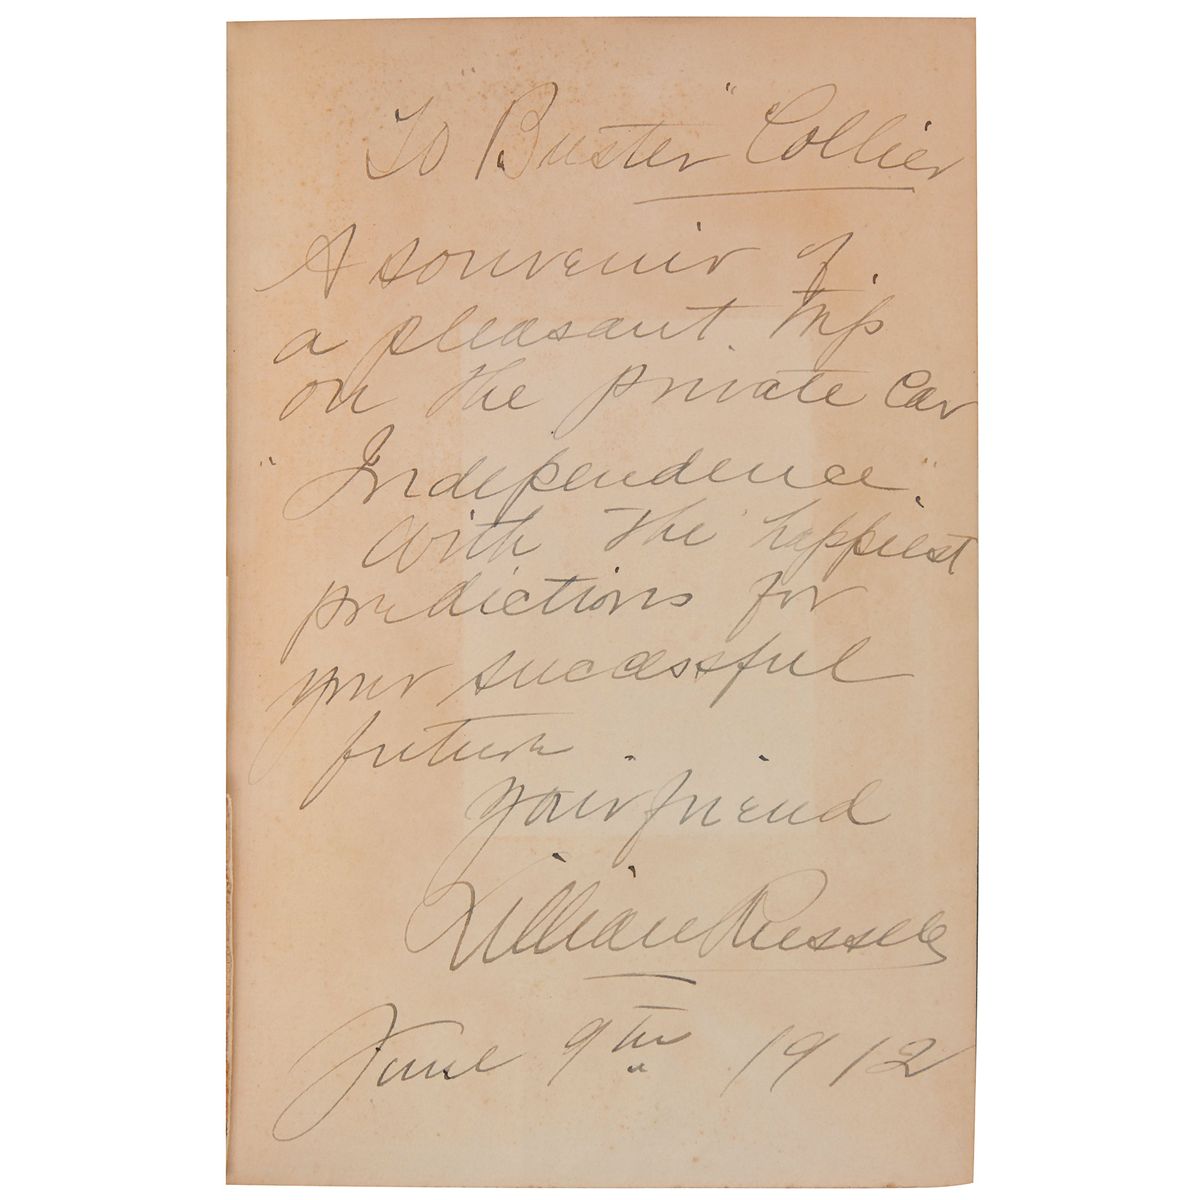 To "Buster" Collier
A souvenir of
a pleasant trip
on the private car
"Independence".
With the happiest
predictions for
your successful
future.
your friend
Lillian Russell
June 9th 1912